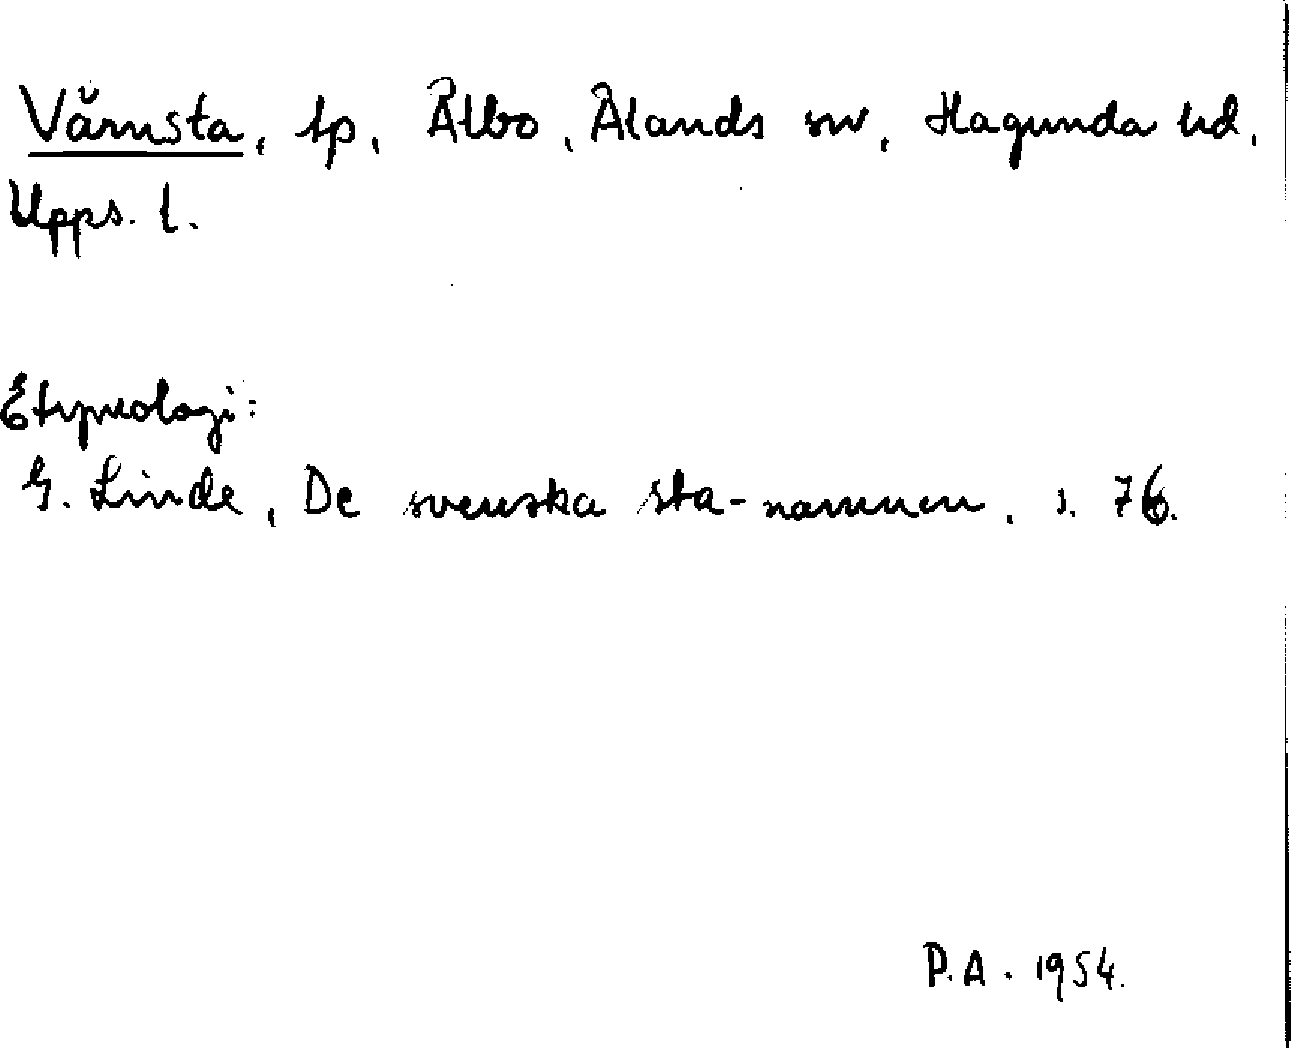 Vårnsta, tp, Ålbo, Ålands sn, Hagunda hd,
Upps. l.
Etymologi:
G. Linde, De svenska sta-namnen, s. 76.
P.A. 1954.